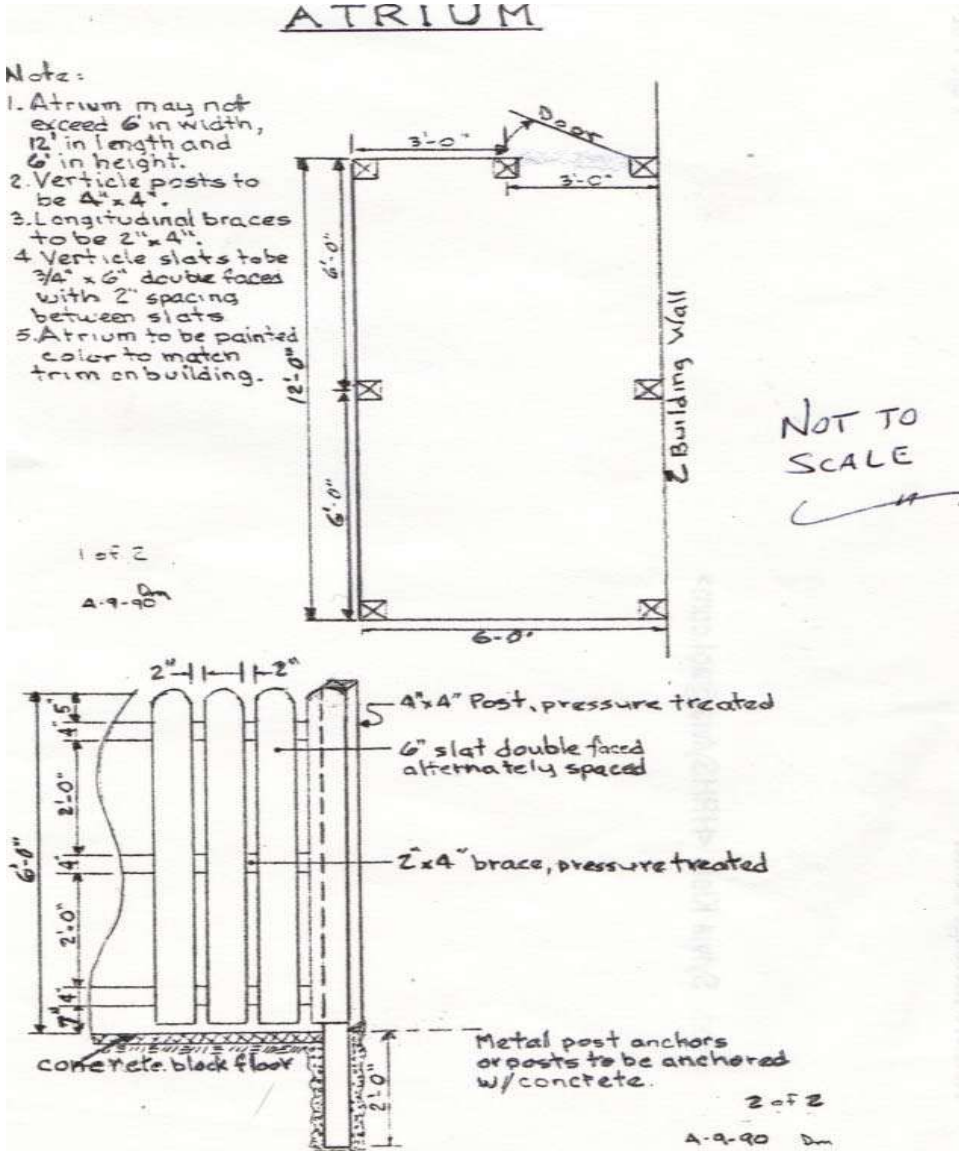 ATRIUM
Note:
1. Atrium may not
exceed 6' in width,
12' in length and
6' in height.
2. Verticle posts to
be 4"x4".
3. Longitudinal braces
to be 2"x4".
4 Verticle slats tobe
3/4" x 6" double faced
with 2" spacing
between slats
5. Atrium to be painted
color to match
trim on building.
3'-0"
Door
3'-0"
6'-0"
12'-0"
6'-0"
6-0"
Building Wall
NOT TO
SCALE
1 of 2
A-9-90 Dm
2" 2"
4"x4" Post, pressure treated
6" slat double faced
alternately spaced
2"x4" brace, pressure treated
6'-0"
5"
4"
2'-0"
4"
2'-0"
4"
7"
concrete block floor
2'-0"
Metal post anchors
or posts to be anchored
w/concrete.
2 of 2
A-9-90 Dm